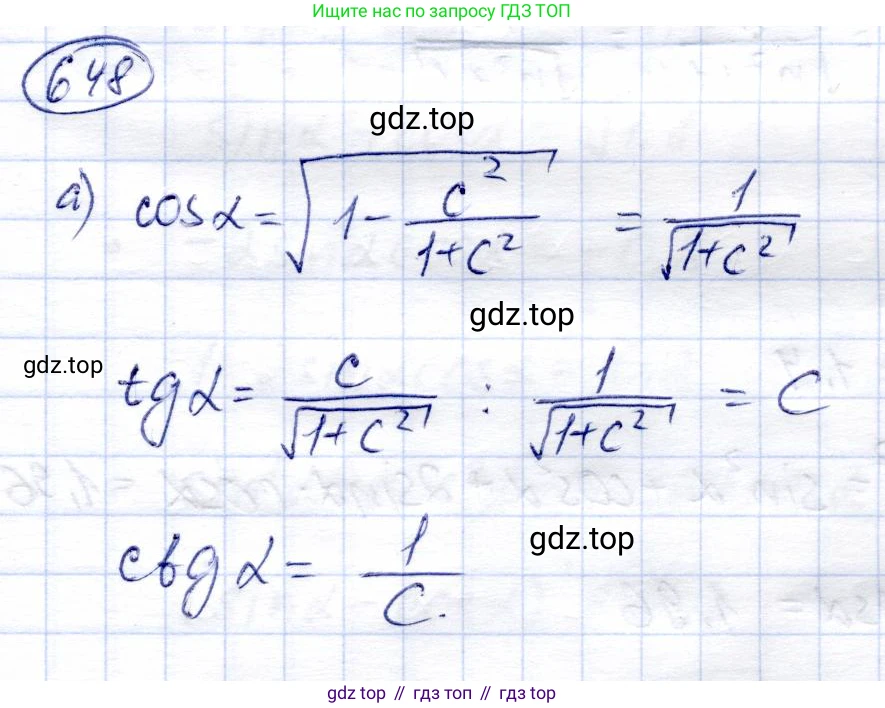 Ищите нас по запросу ГДЗ ТОП
648
gdz.top
а) cos α = √(1 - c²/(1+c²)) = 1/√(1+c²)
gdz.top
gdz.top
tg α = c/√(1+c²) : 1/√(1+c²) = C
gdz.top
ctg α = 1/C.
gdz top // гдз топ // гдз top